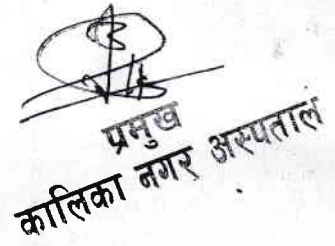 प्रमुख
कालिका नगर अस्पताल